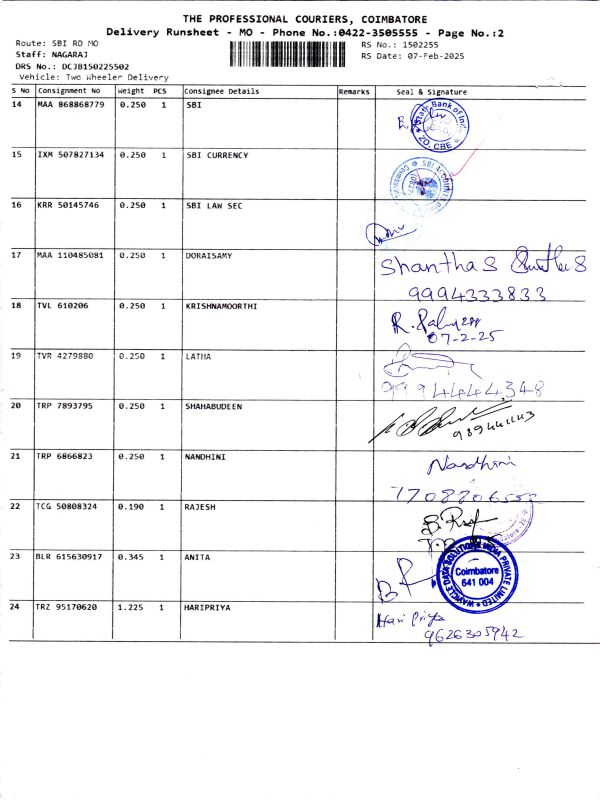 THE PROFESSIONAL COURIERS, COIMBATORE
Delivery Runsheet - MO - Phone No.:0422-3505555 - Page No.:2
Route: SBI RD MO RS No.: 1502255
Staff: NAGARAJ RS Date: 07-Feb-2025
DRS No.: DCJB150225502
Vehicle: Two Wheeler Delivery
S No Consignment No Weight PCS Consignee Details Remarks Seal & Signature
14 MAA 868868779 0.250 1 SBI
State Bank of
ZO, CBE
15 IXM 507827134 0.250 1 SBI CURRENCY
16 KRR 50145746 0.250 1 SBI LAW SEC
17 MAA 110485081 0.250 1 DORAISAMY Shantha S
9994333833
18 TVL 610206 0.250 1 KRISHNAMOORTHI
07-2-25
19 TVR 4279880 0.250 1 LATHA
9994444348
20 TRP 7893795 0.250 1 SHAHABUDEEN
21 TRP 6866823 0.250 1 NANDHINI Nandhini
22 TCG 50808324 0.190 1 RAJESH
23 BLR 615630917 0.345 1 ANITA
DATA SOLUTIONS INDIA PRIVATE LIMITED
Coimbatore
641 004
24 TRZ 95170620 1.225 1 HARIPRIYA Hari Priya
9626305942